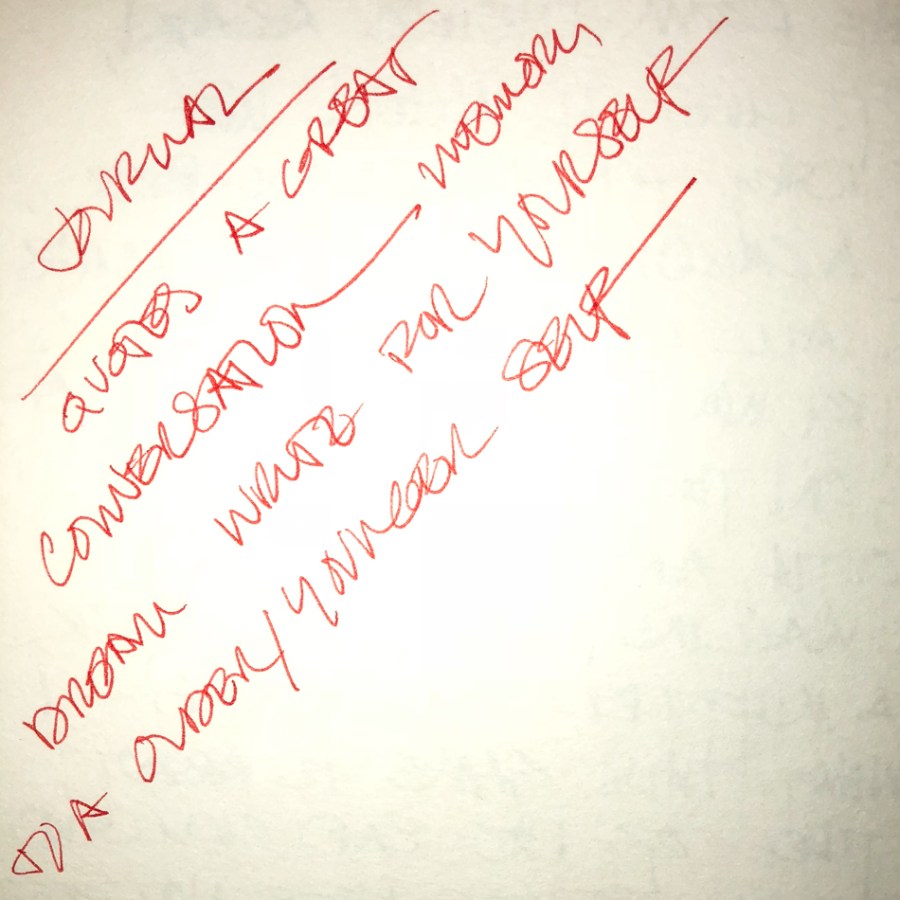 JOURNAL
QUOTES A GREAT
CONVERSATION MEMORY
DREAM WRITE FOR YOURSELF
TO A OLDER/YOUNGER SELF